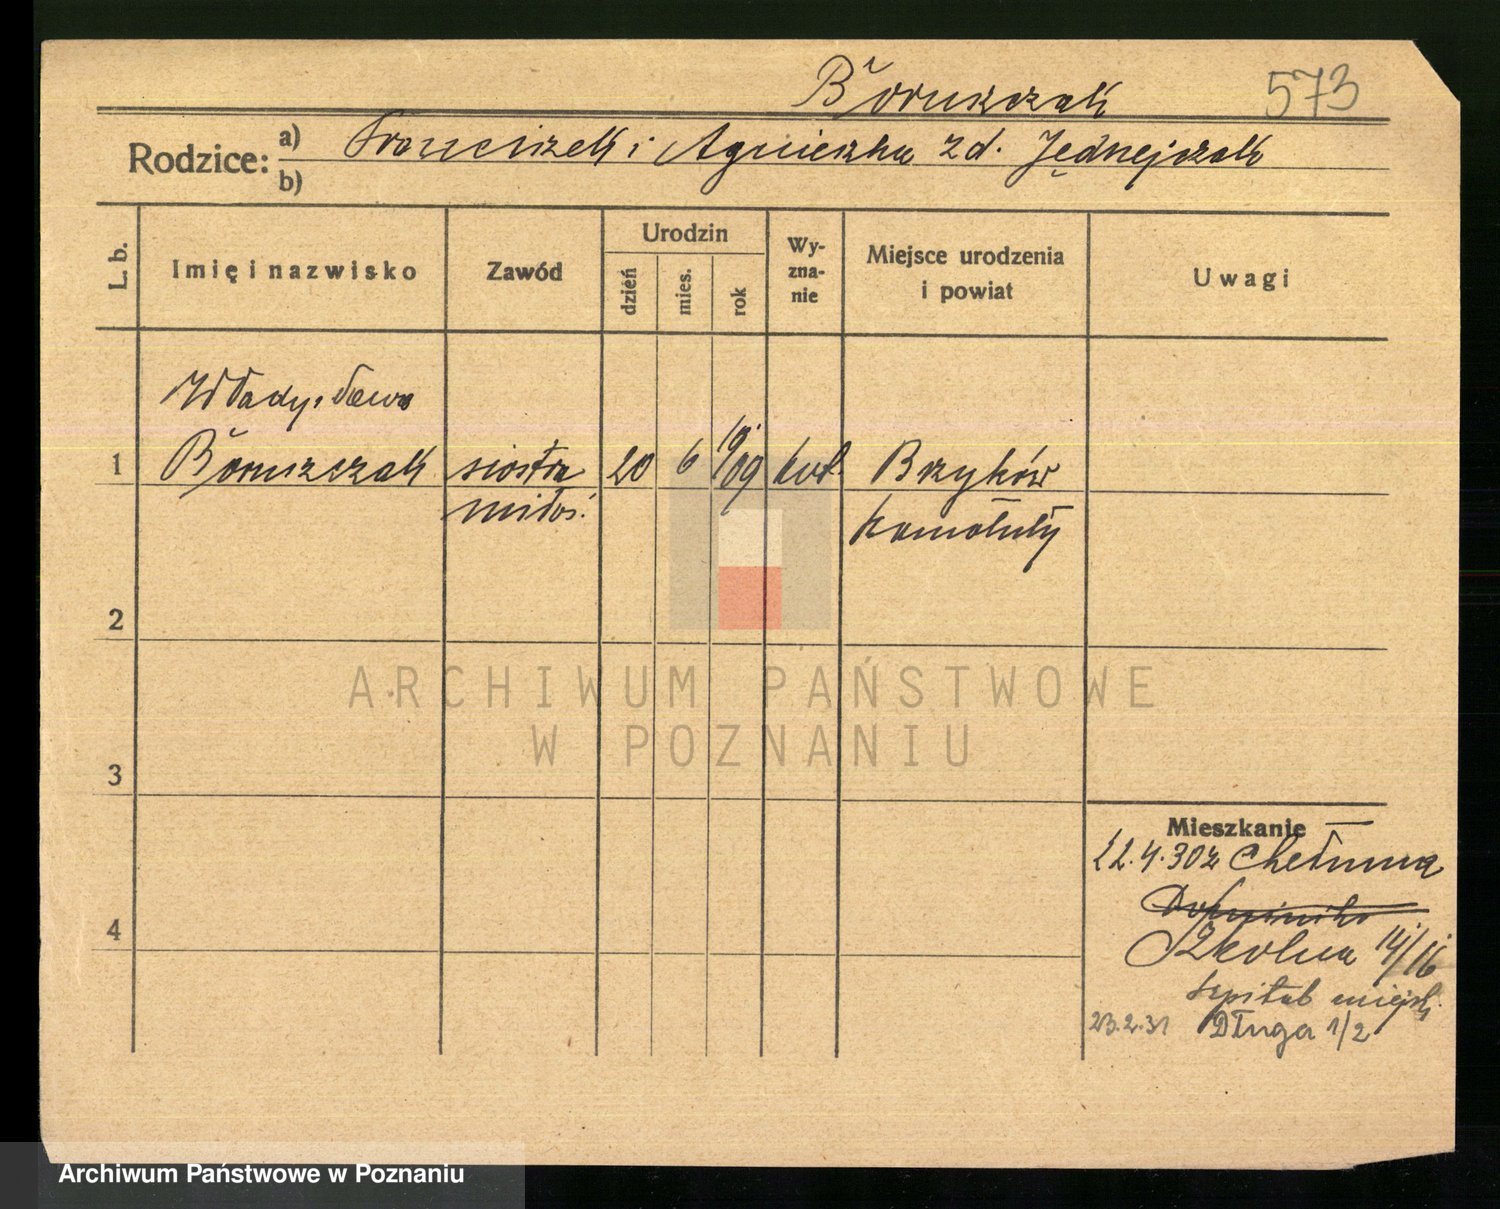 Boruszczak 573
Rodzice: a) Franciszek i Agnieszka z d. Jędrzejczak
b)
L. b. Imię i nazwisko Zawód Urodzin dzień mies. rok Wy-zna-nie Miejsce urodzenia i powiat Uwagi
Władysława
1 Boruszczak siostra 20 6 1909 kat. Brzyków
miłos.
2
ARCHIWUM PAŃSTWOWE
W POZNANIU
3
Mieszkanie
22.4.30 z Chełmna
4
Szkolna 14/16
szpital miejsk.
23.2.31 Długa 1/2
Archiwum Państwowe w Poznaniu